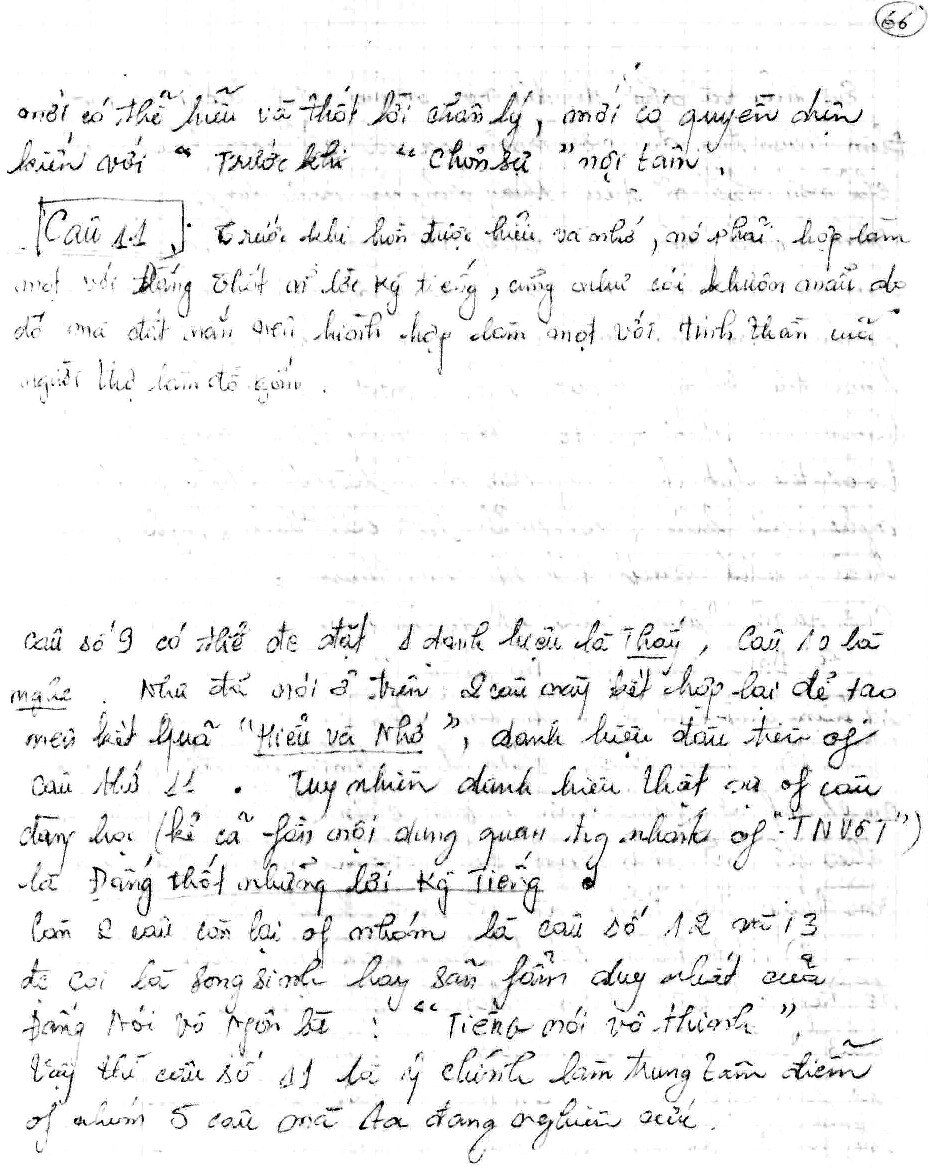 66
mới có thể hiểu và thốt lời chân lý, mới có quyền diện
kiến với " Trước khi " Chơn sư " nội tâm.
Câu 11 : Trước khi hồn được hiểu và nhớ, nó phải hợp làm
một với Đấng thốt ra lời kỳ tiếng, cũng như cái khuôn mẫu do
đó mà đất nắn nên hình hợp làm một với tinh thần của
người thợ làm đồ gốm.
Câu số 9 có thể đc đặt 1 danh hiệu là Thấy, Câu 10 là
nghe. Như đã nói ở trên 2 câu này kết hợp lại để tạo
nên kết quả "Hiểu và Nhớ", danh hiệu đầu tiên of
câu thứ 11. Tuy nhiên danh hiệu thật sự of câu
đang học (kể cả fần nội dung quan tig nhất of "TNVGT")
là Đấng thốt những lời kỳ Tiếng.
Còn 2 câu còn lại of nhóm là câu số 12 và 13
đc coi là song sinh hay sản fẩm duy nhất của
Đấng Nói vô Ngôn là : "Tiếng nói vô thinh".
Vậy thì câu số 11 là ý chính làm trung tâm điểm
of nhóm 5 câu mà ta đang nghiên cứu.